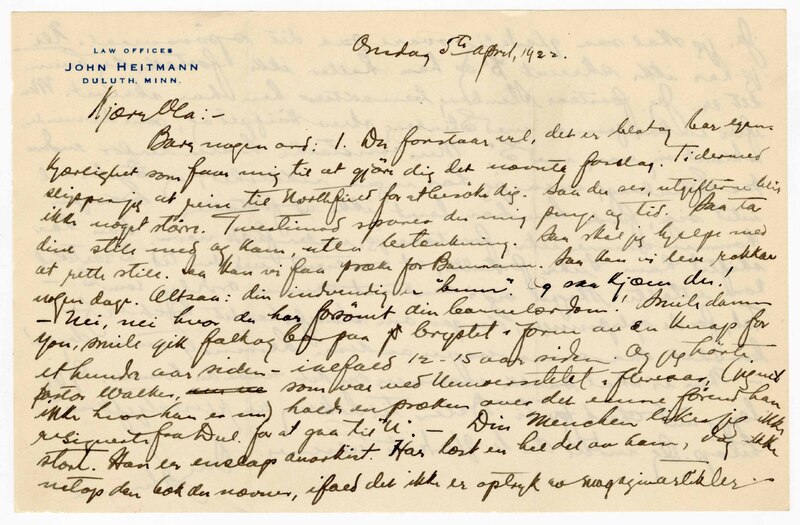 LAW OFFICES
JOHN HEITMANN
DULUTH, MINN.
Onsdag 5th April, 1922.
Kjære Ola:-
Bare nogen ord: 1. Du forstaar vel, det er blot og bar egen
kjærlighet som faar mig til at gjøre dig det nævnte forslag. Tidermed
slipper jeg at reise til Northfield for at besøke dig. Saa du ser, utgifterne blir
ikke noget større. Tvertimod sparer du mig penge og tid. Saa ta
dine stile med og kom, uten betænkning. Saa skal jeg hjelpe med
at rette stile. Saa kan vi faa præke for Baumann. Saa kan vi leve
nogen dage. Altsaa: din indvendig er "bunn" og saa kjem du!
- Nei, nei hvor du har forsømt din barnelærdom! Smile damn
you, smile gik folk og bar paa brystet i form av en knap for
et hundre aar siden - ialfald 12-15 aar siden. Og jeg hørte
pastor Walker, som var ved Universitetet i flere aar, (jeg vet
ikke hvor han er nu) holde en præken over det emne førend han
resignerte fra Dul. for at gaa til U. - Din Mencken liker jeg ikke
stort. Han er en slags anarkist. Har læst en hel del av ham, dog ikke
netop den bok du nævner, ifald det ikke er optryk av magazinartikler.